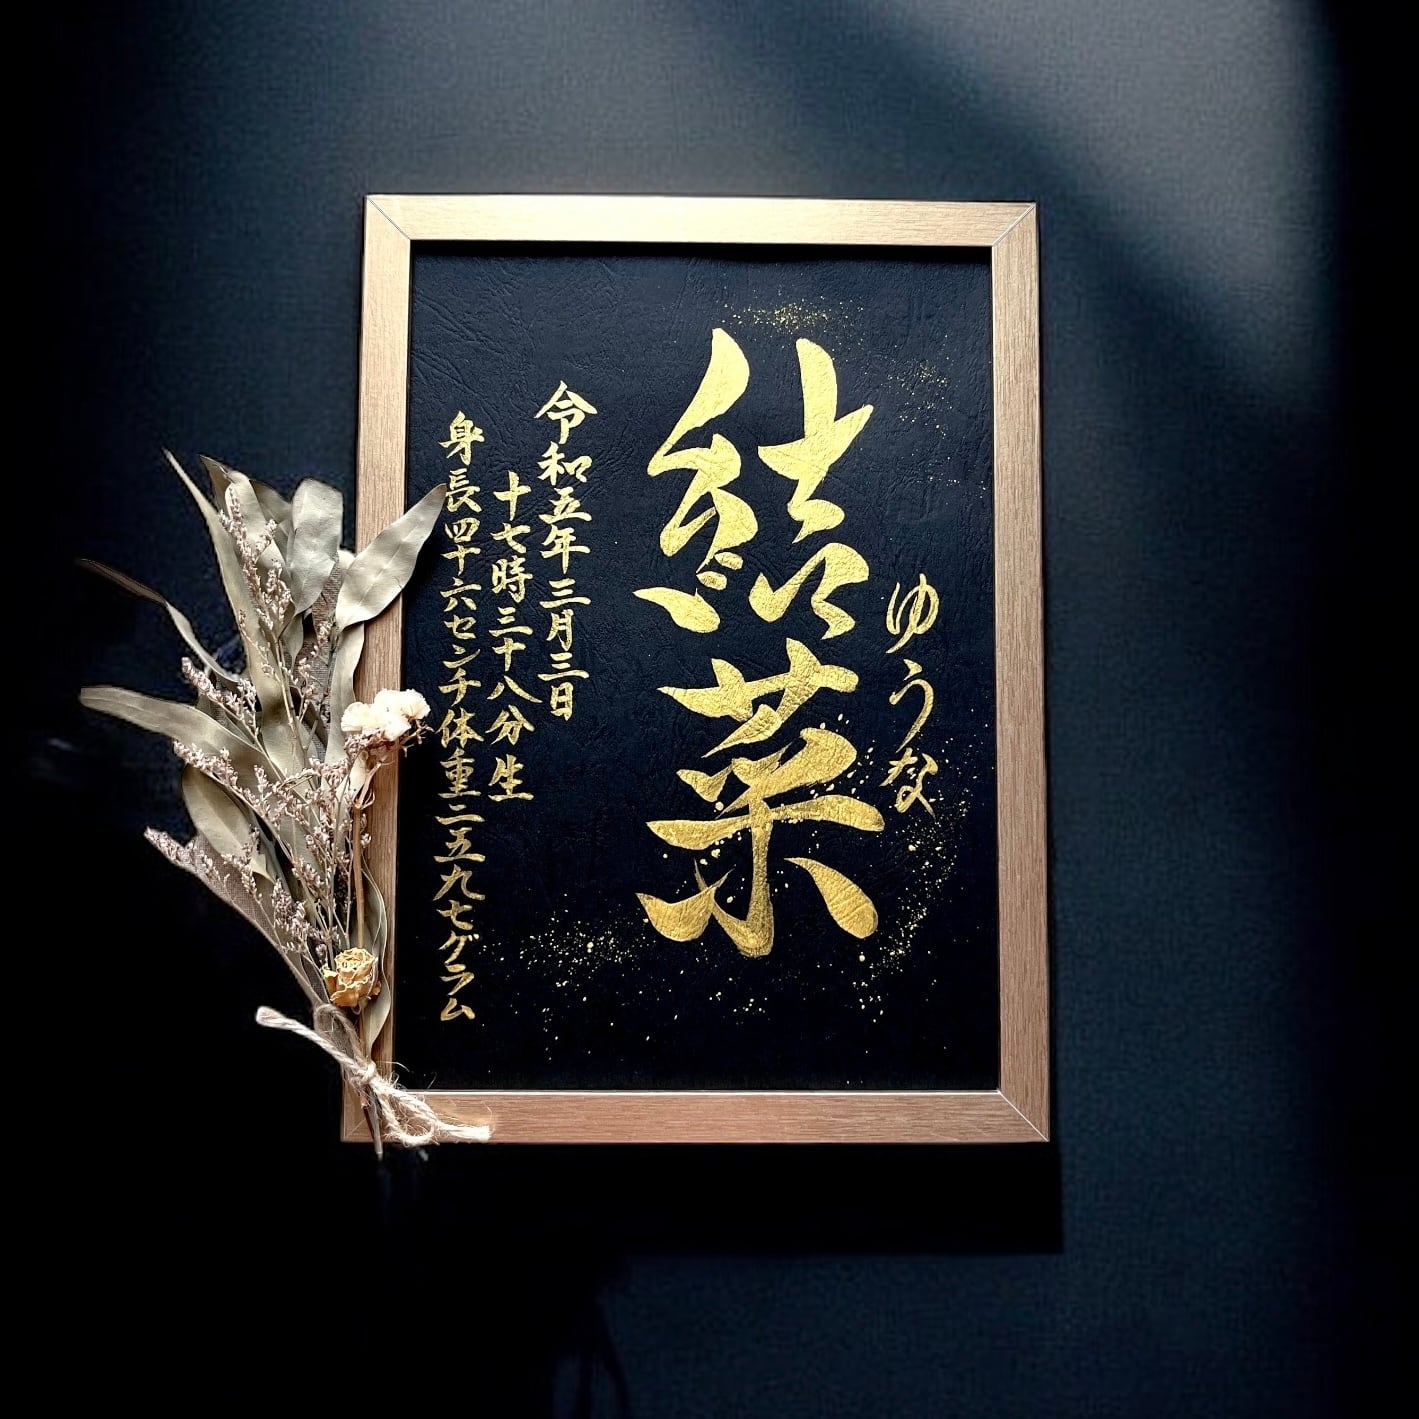 ゆうな
結菜
令和五年三月三日
十七時三十八分生
身長四十六センチ体重二五九七グラム